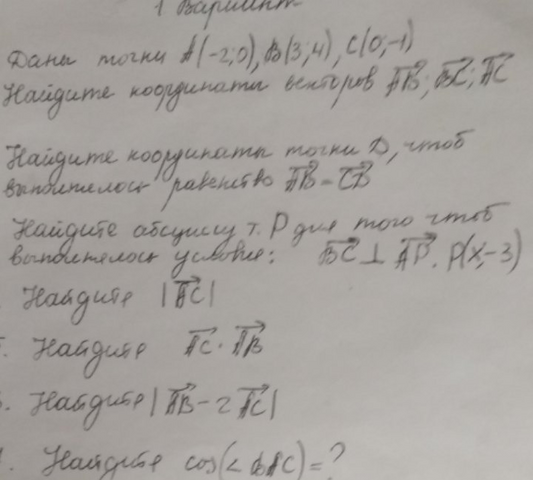 1 Вариант
Даны точки A(-2;0), B(3;4), C(0;-1)
Найдите координаты векторов AB; BC; AC
Найдите координаты точки D, чтоб
выполнялось равенство AB = CD
Найдите абсциссу т. P для того чтоб
выполнялось условие: BC ⊥ AP. P(x;-3)
. Найдите |AC|
. Найдите AC · AB
. Найдите |AB - 2AC|
. Найдите cos(< BAC) = ?